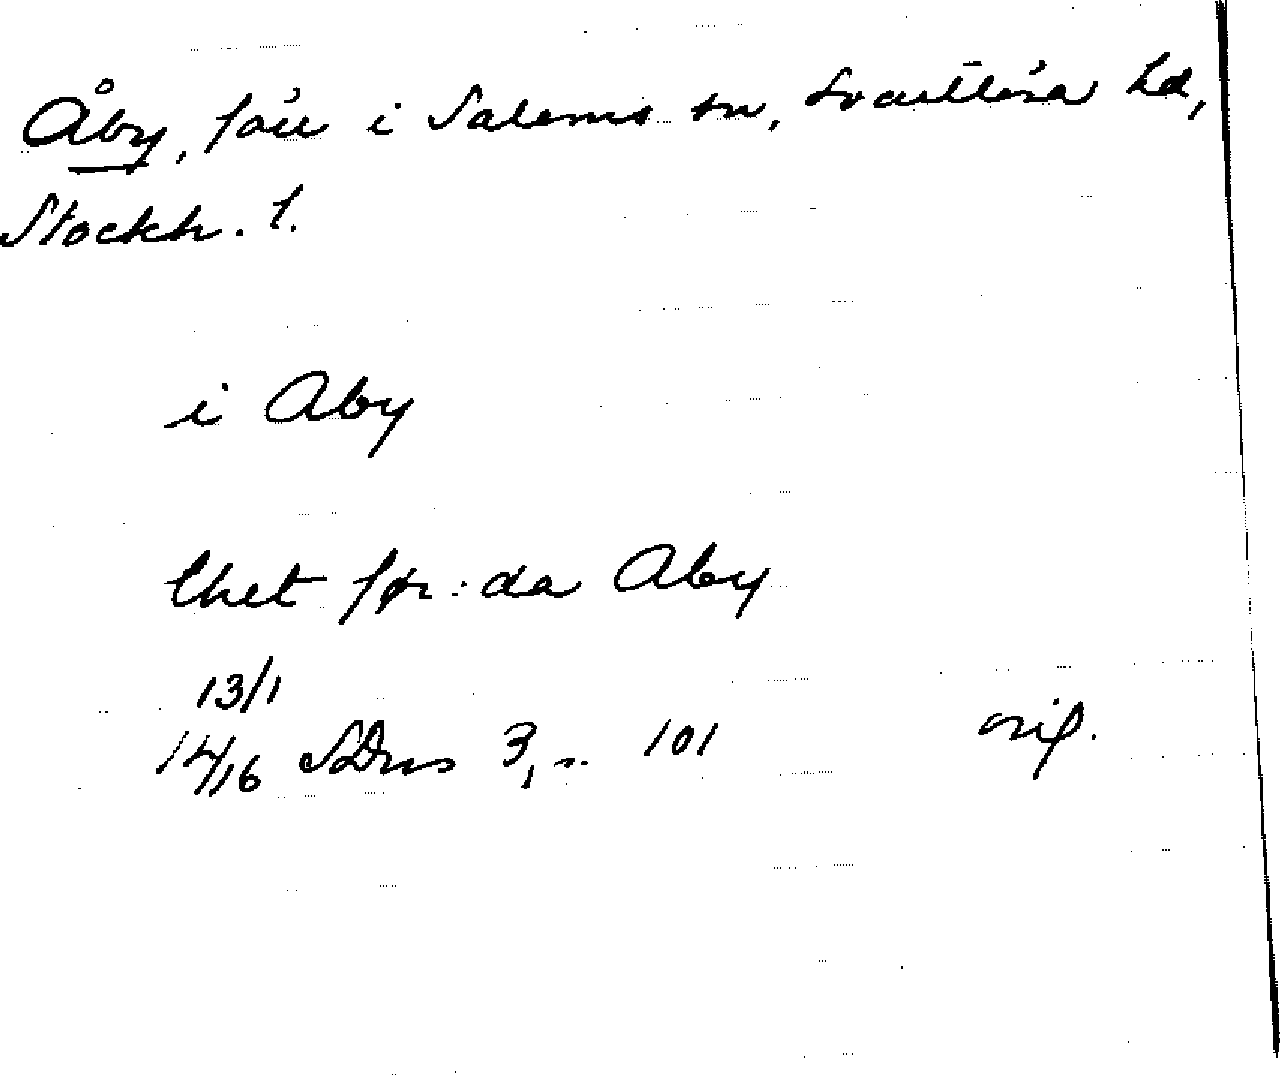 Åby, förr i Salems sn, Svartlösa hd,
Stockh. l.
i Aby
thet før:da Aby
13/1
14/16 SDns 3, s. 101 orig.